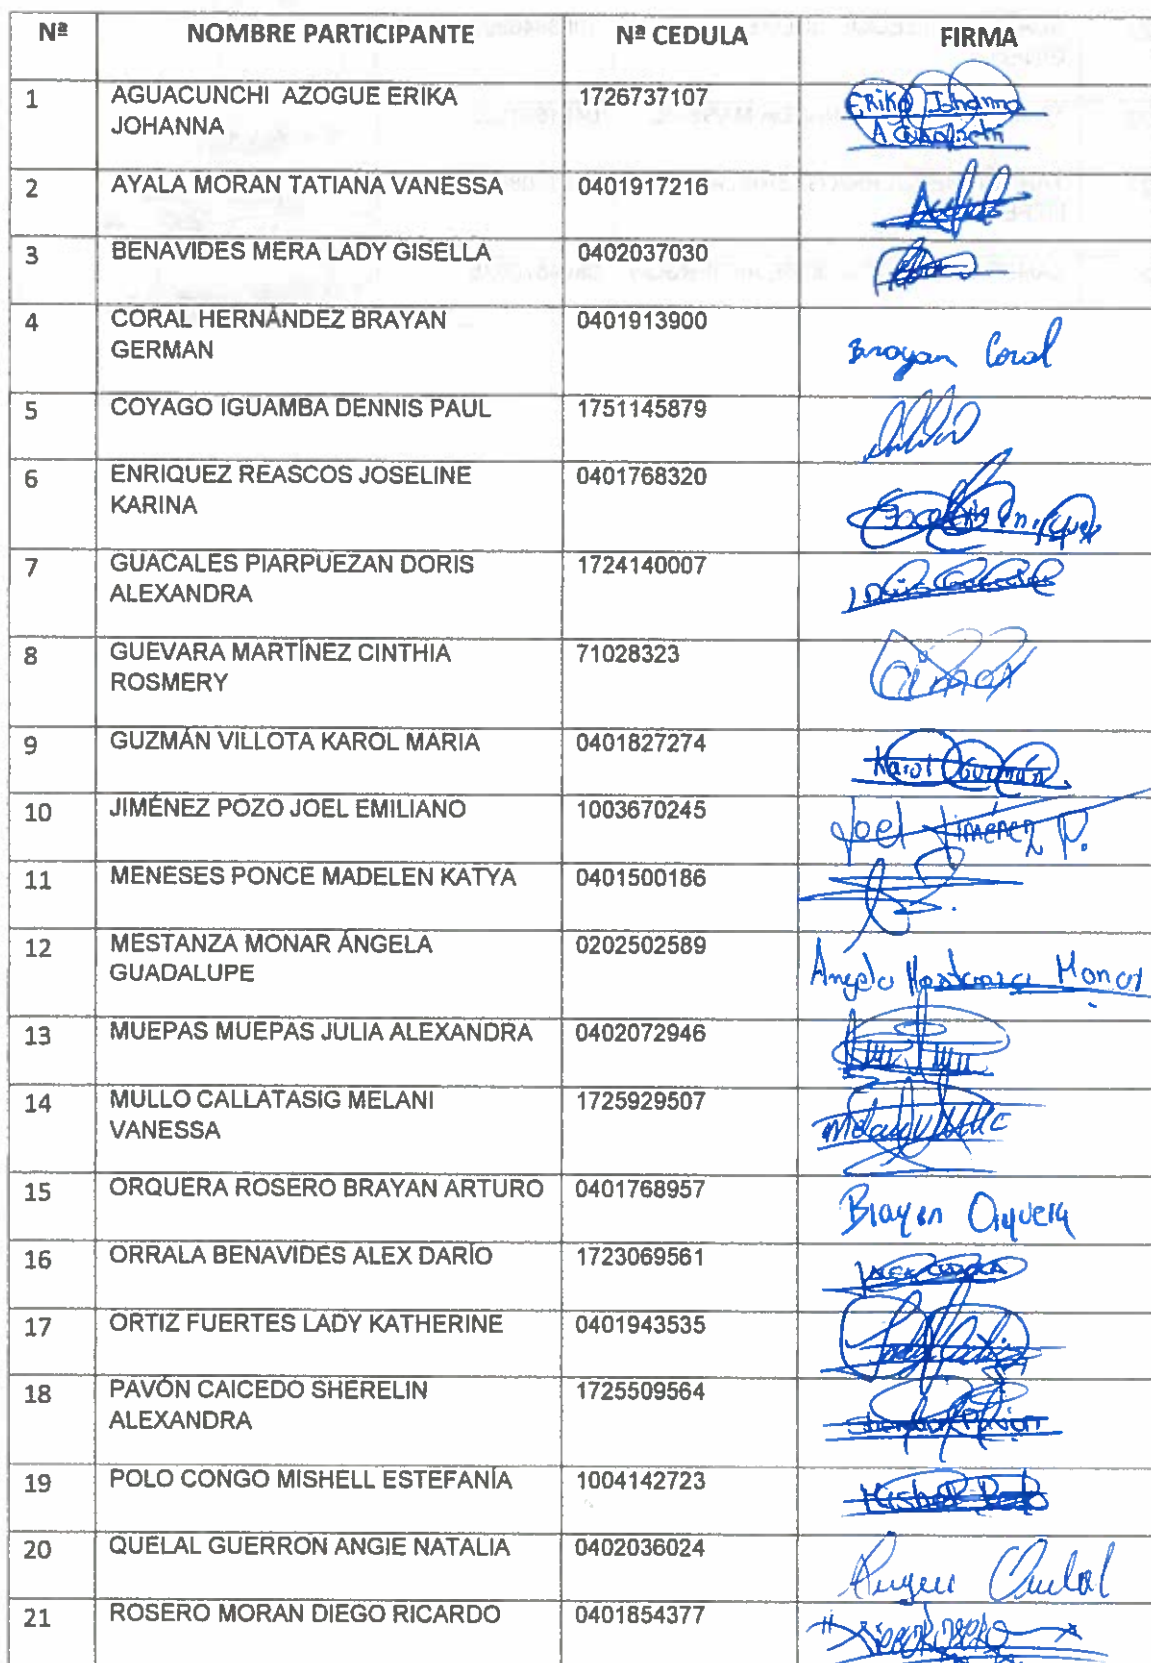 Nª NOMBRE PARTICIPANTE Nª CEDULA FIRMA
1 AGUACUNCHI AZOGUE ERIKA 1726737107 ERiKa Johanna
JOHANNA
2 AYALA MORAN TATIANA VANESSA 0401917216
3 BENAVIDES MERA LADY GISELLA 0402037030
4 CORAL HERNÁNDEZ BRAYAN 0401913900
GERMAN Brayan Coral
5 COYAGO IGUAMBA DENNIS PAUL 1751145879
6 ENRIQUEZ REASCOS JOSELINE 0401768320
KARINA
7 GUACALES PIARPUEZAN DORIS 1724140007
ALEXANDRA
8 GUEVARA MARTÍNEZ CINTHIA 71028323
ROSMERY
9 GUZMÁN VILLOTA KAROL MARIA 0401827274 Karol Guzmán
10 JIMÉNEZ POZO JOEL EMILIANO 1003670245 Joel Jiménez P.
11 MENESES PONCE MADELEN KATYA 0401500186
12 MESTANZA MONAR ÁNGELA 0202502589 Angela Mestanza Monar
GUADALUPE
13 MUEPAS MUEPAS JULIA ALEXANDRA 0402072946
14 MULLO CALLATASIG MELANI 1725929507
VANESSA
15 ORQUERA ROSERO BRAYAN ARTURO 0401768957 Brayan Orquera
16 ORRALA BENAVIDES ALEX DARÍO 1723069561
17 ORTIZ FUERTES LADY KATHERINE 0401943535
18 PAVÓN CAICEDO SHERELIN 1725509564
ALEXANDRA
19 POLO CONGO MISHELL ESTEFANÍA 1004142723 Mishell Polo
20 QUELAL GUERRON ANGIE NATALIA 0402036024
21 ROSERO MORAN DIEGO RICARDO 0401854377